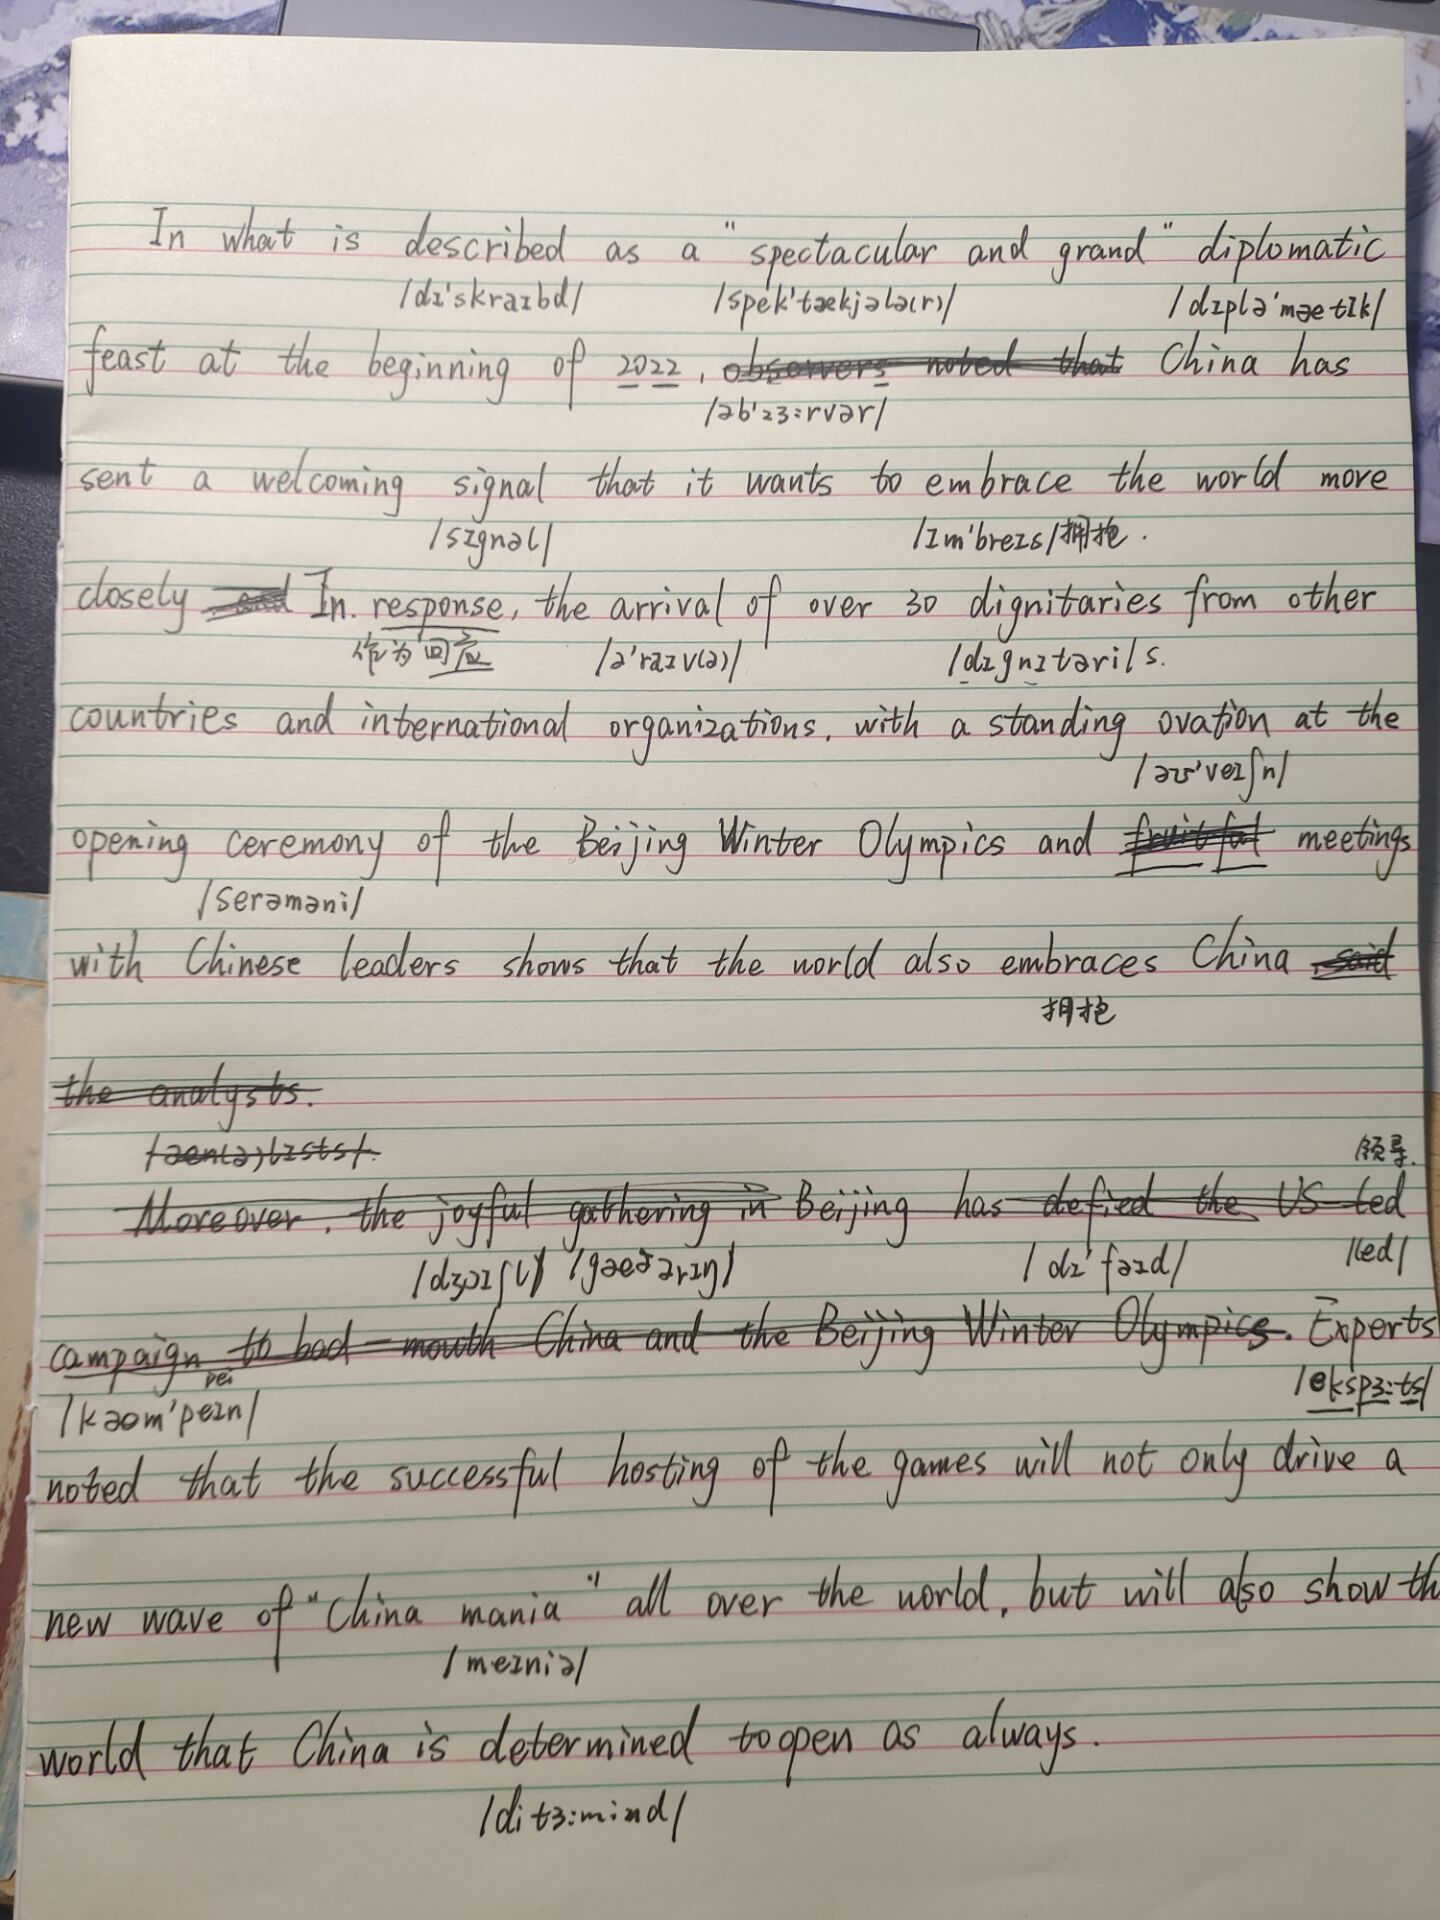 In what is described as a "spectacular and grand" diplomatic
/dɪ'skraɪbd/ /spek'tækjələ(r)/ /dɪplə'mætɪk/
feast at the beginning of 2022, observers noted that China has
/əb'zɜ:rvər/
sent a welcoming signal that it wants to embrace the world more
/sɪgnəl/ /ɪm'breɪs/拥抱.
closely and In response, the arrival of over 30 dignitaries from other
作为回应 /ə'raɪv(ə)/ /dɪgnɪtəri/s.
countries and international organizations, with a standing ovation at the
/əʊ'veɪʃn/
opening ceremony of the Beijing Winter Olympics and fruitful meetings
/serəməni/
with Chinese leaders shows that the world also embraces China said
拥抱
the analysts.
/æn(ə)lɪsts/.
领导.
Moreover, the joyful gathering in Beijing has defied the US led
/dʒɔɪfl/ /gæðərɪŋ/ /dɪ'faɪd/ /led/
campaign to bad-mouth China and the Beijing Winter Olympics. Experts
pei
/kæm'peɪn/ /ekspɜ:ts/
noted that the successful hosting of the games will not only drive a
new wave of "China mania" all over the world, but will also show th
/meɪniə/
world that China is determined to open as always.
/ditɜ:mind/